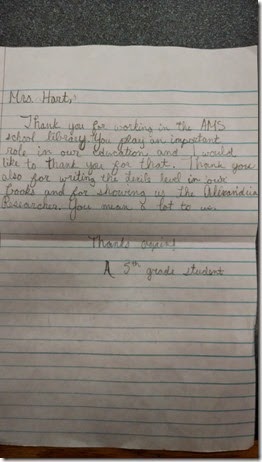 Mrs. Hart,
Thank you for working in the AMS
school library. You play an important
role in our education and I would
like to thank you for that. Thank you
also for writing the lexile level in our
books and for showing us the Alexandria
Researcher. You mean a lot to us.
Thanks again!
A 5th grade student